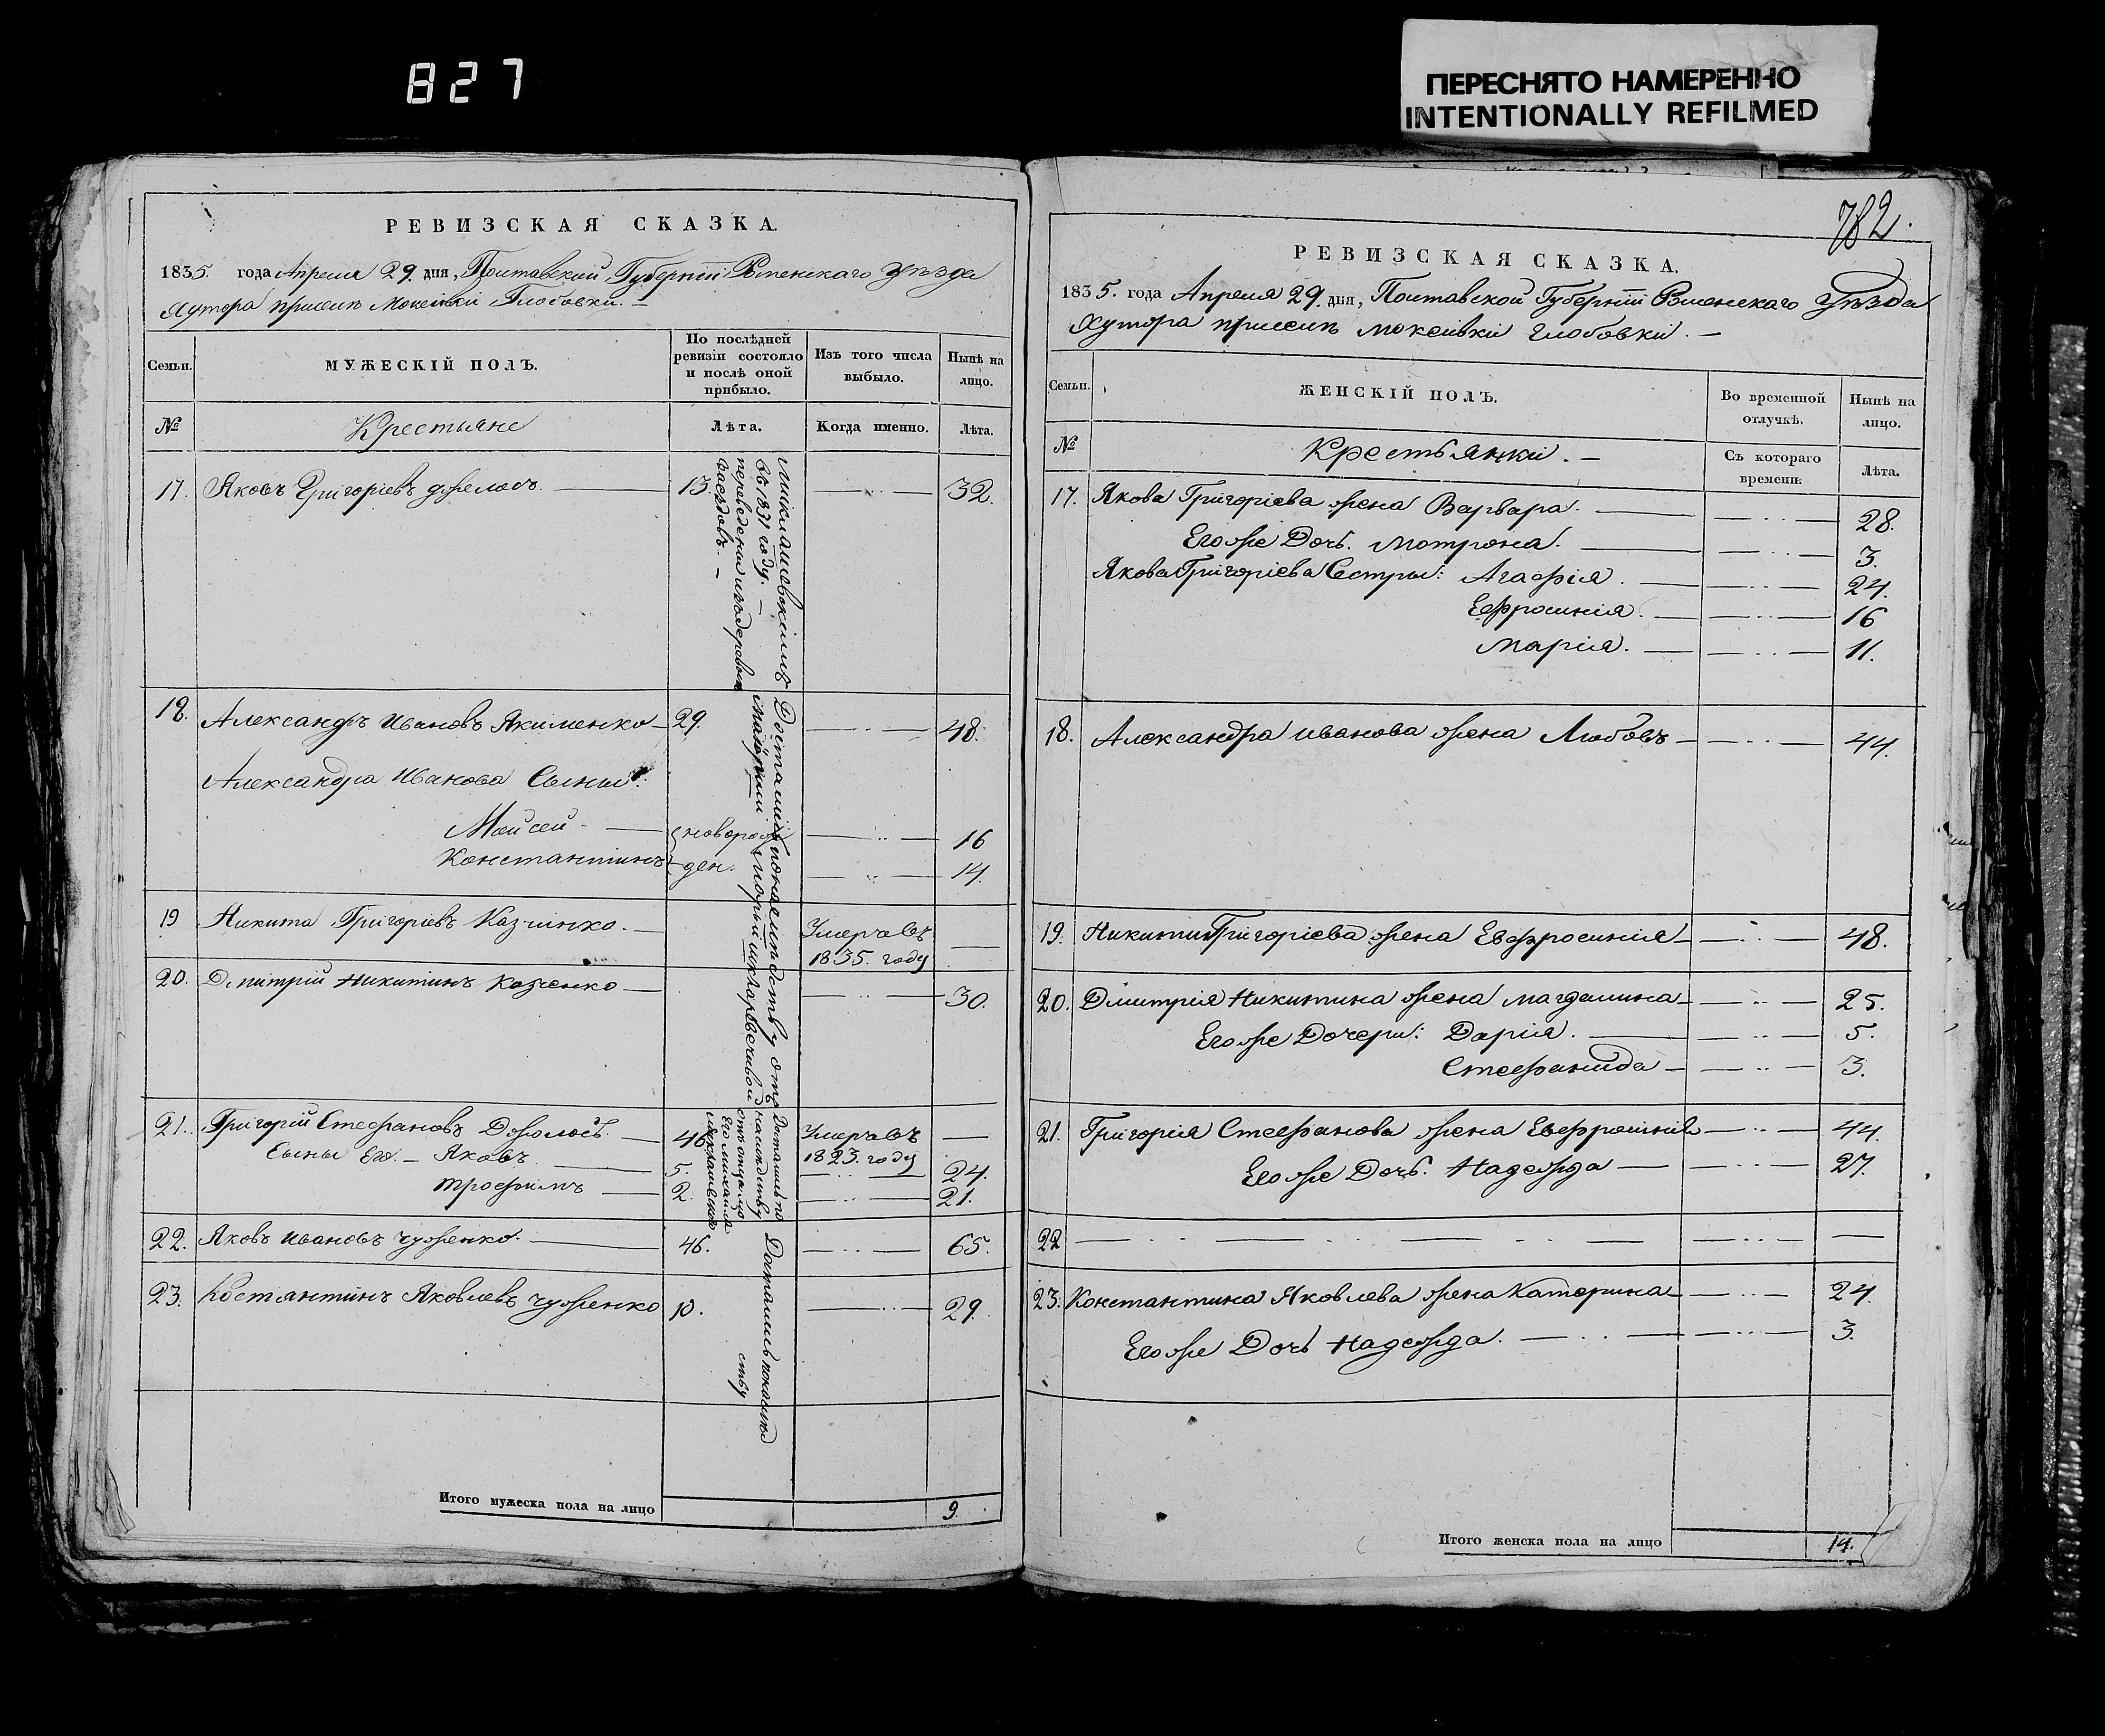 827
ПЕРЕСНЯТО НАМЕРЕННО
INTENTIONALLY REFILMED
РЕВИЗСКАЯ СКАЗКА.
1835. года Апреля 29. дня, Полтавской Губернiи Роменскаго Уѣзда
Хутора присилк Моксiивки Глобовки. —
Семьи.
МУЖЕСКIЙ ПОЛЪ.
По послѣдней ревизiи состояло и послѣ оной прибыло.
Изъ того числа выбыло.
Нынѣ на лицо.
№
Крестьяне
Лѣта.
Когда именно.
Лѣта.
17. Яковъ Григорiевъ 13. 32.
въ 1831 году. —
переведени изъ деревни
18. Александръ Ивановъ Якименко 29. 48.
Александра Иванова Сыны:
Мойсей новорож 16
Константинъ ден. 14.
19 Никита Григорiевъ Казченко. Умеръ въ 1835. году —
20. Дмитрiй Никитинъ Казченко 30.
21. Григорiй Стефановъ 46. Умеръ въ 1823. году —
Сыны Его. — Яковъ 5. 24.
Трофимъ 2. 21.
22. Яковъ Ивановъ Чуженко. 46. 65.
23. Костянтинъ Яковлевъ Чуженко 10. 29.
Итого мужеска пола на лицо 9.
782.
РЕВИЗСКАЯ СКАЗКА.
1835. года Апреля 29. дня, Полтавской Губернiи Роменскаго Уѣзда
Хутора присилк Моксiивки Глобовки. —
Семьи.
ЖЕНСКIЙ ПОЛЪ.
Во временной отлучкѣ.
Нынѣ на лицо.
№
Крестьянки. —
Съ котораго времени.
Лѣта.
17. Якова Григорiева жена Варвара. 28.
Егоже Дочь. Мотрона. 3.
Якова Григорiева Сестры: Агафiя. 24.
Ефросинiя. 16
Марiя. 11.
18. Александра Иванова жена Любовъ 44.
19. Никиты Григорiева жена Евфросинiя 48.
20. Дмитрiя Никитина жена Магдалина 25.
Егоже Дочери: Дарiя. 5.
Стефанида 3.
21. Григорiя Стефанова жена Евфросинiя 44.
Егоже Дочь. Надежда 27.
22 —
23. Константина Яковлева жена Катерина 24.
Егоже Дочь Надежда. 3.
Итого женска пола на лицо 14.